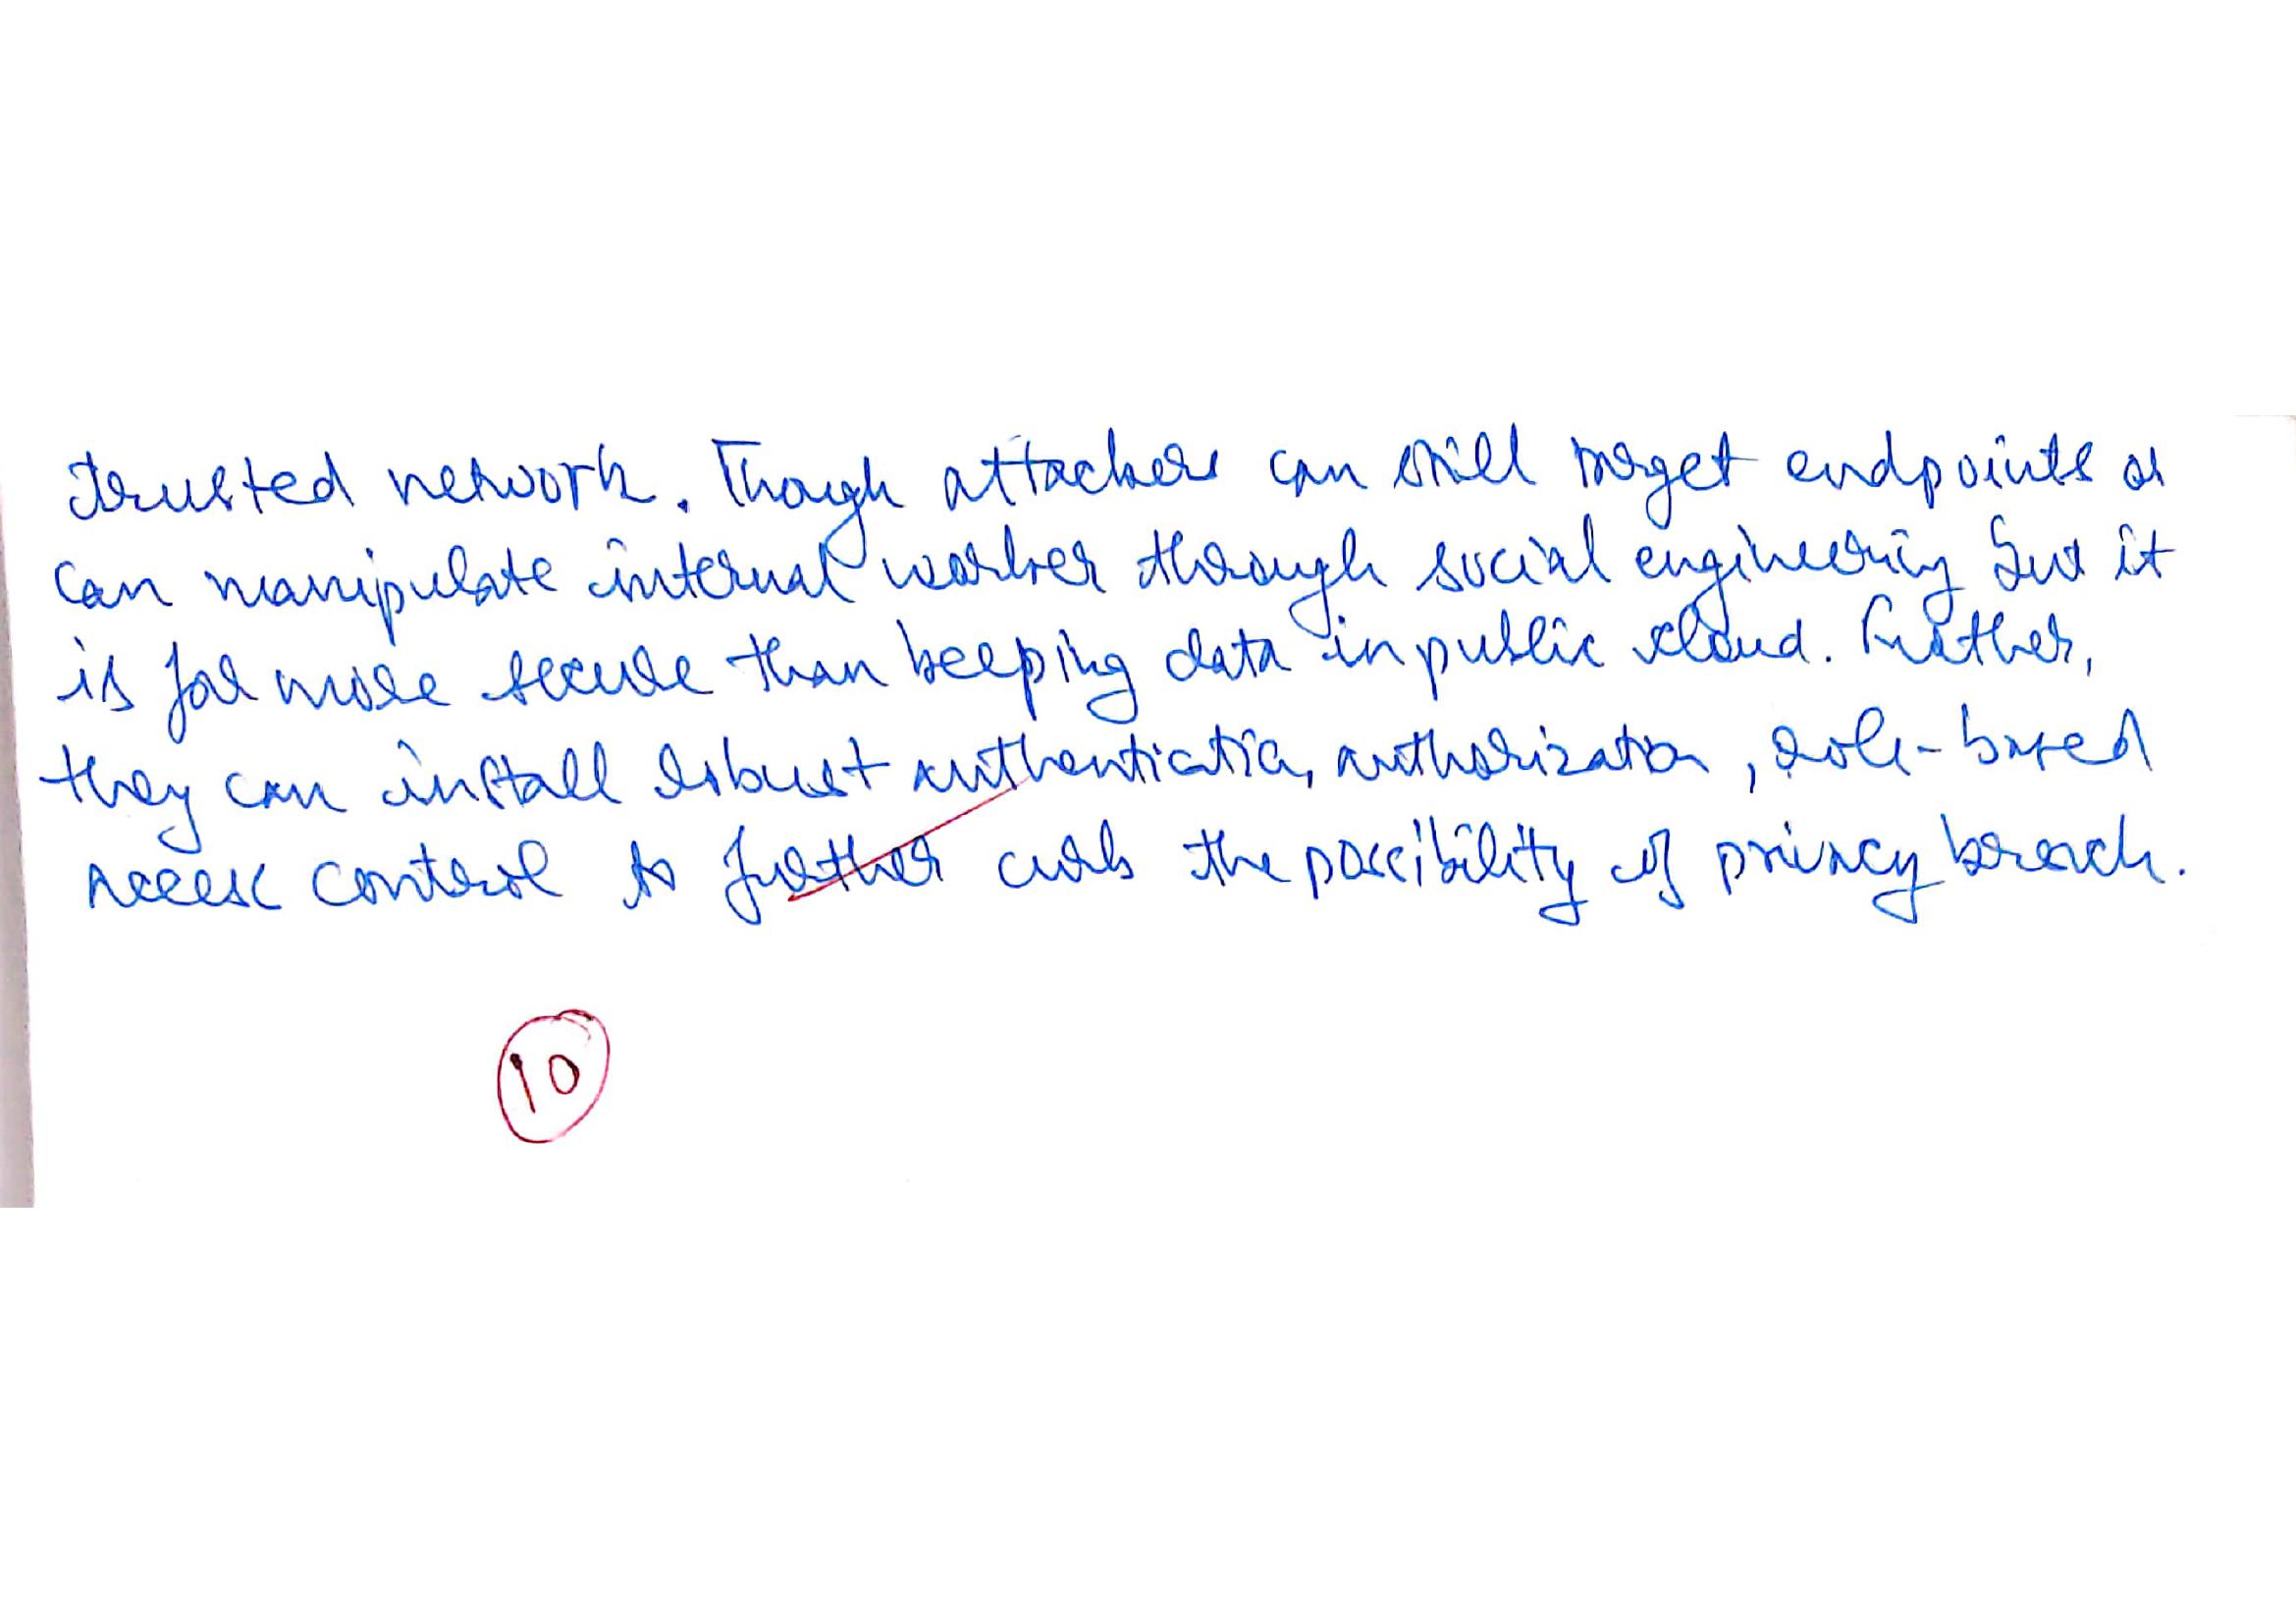 trusted network. Though attackers can still target endpoints or
can manipulate internal worker through social engineering but it
is far more secure than keeping data in public cloud. Further,
they can install robust authentication, authorization, role-based
access control to further curb the possibility of privacy breach.
10